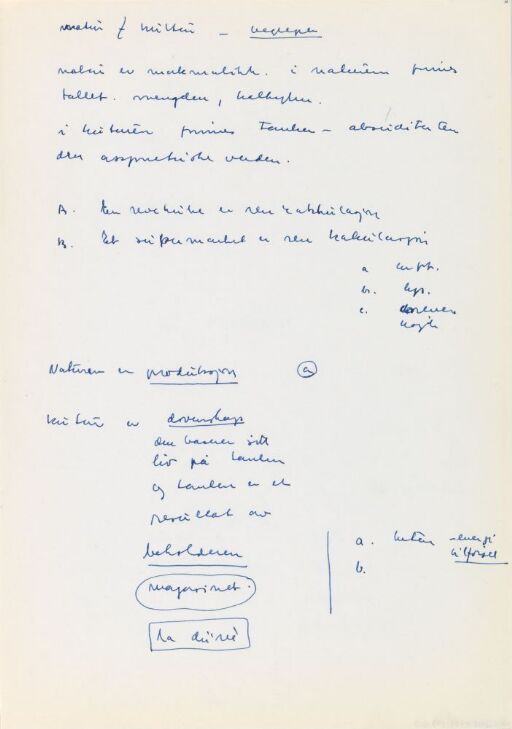 natur / kultur – begreper
natur er matematikk. i naturen finnes
tallet. mengden, helheten.
i kulturen finnes tanken – absurditeten
den assymetriske verden.
A. En er ren kalkulasjon
B. Et supermarket er ren kalkulasjon
a
b. lys.
c.
Naturen er produksjon a
kultur er dovenskap
den baserer sitt
liv på tanken
og tanken er et
resultat av
beholderen
magasinet.
la durée
a. uten energi
tilførsel
b.